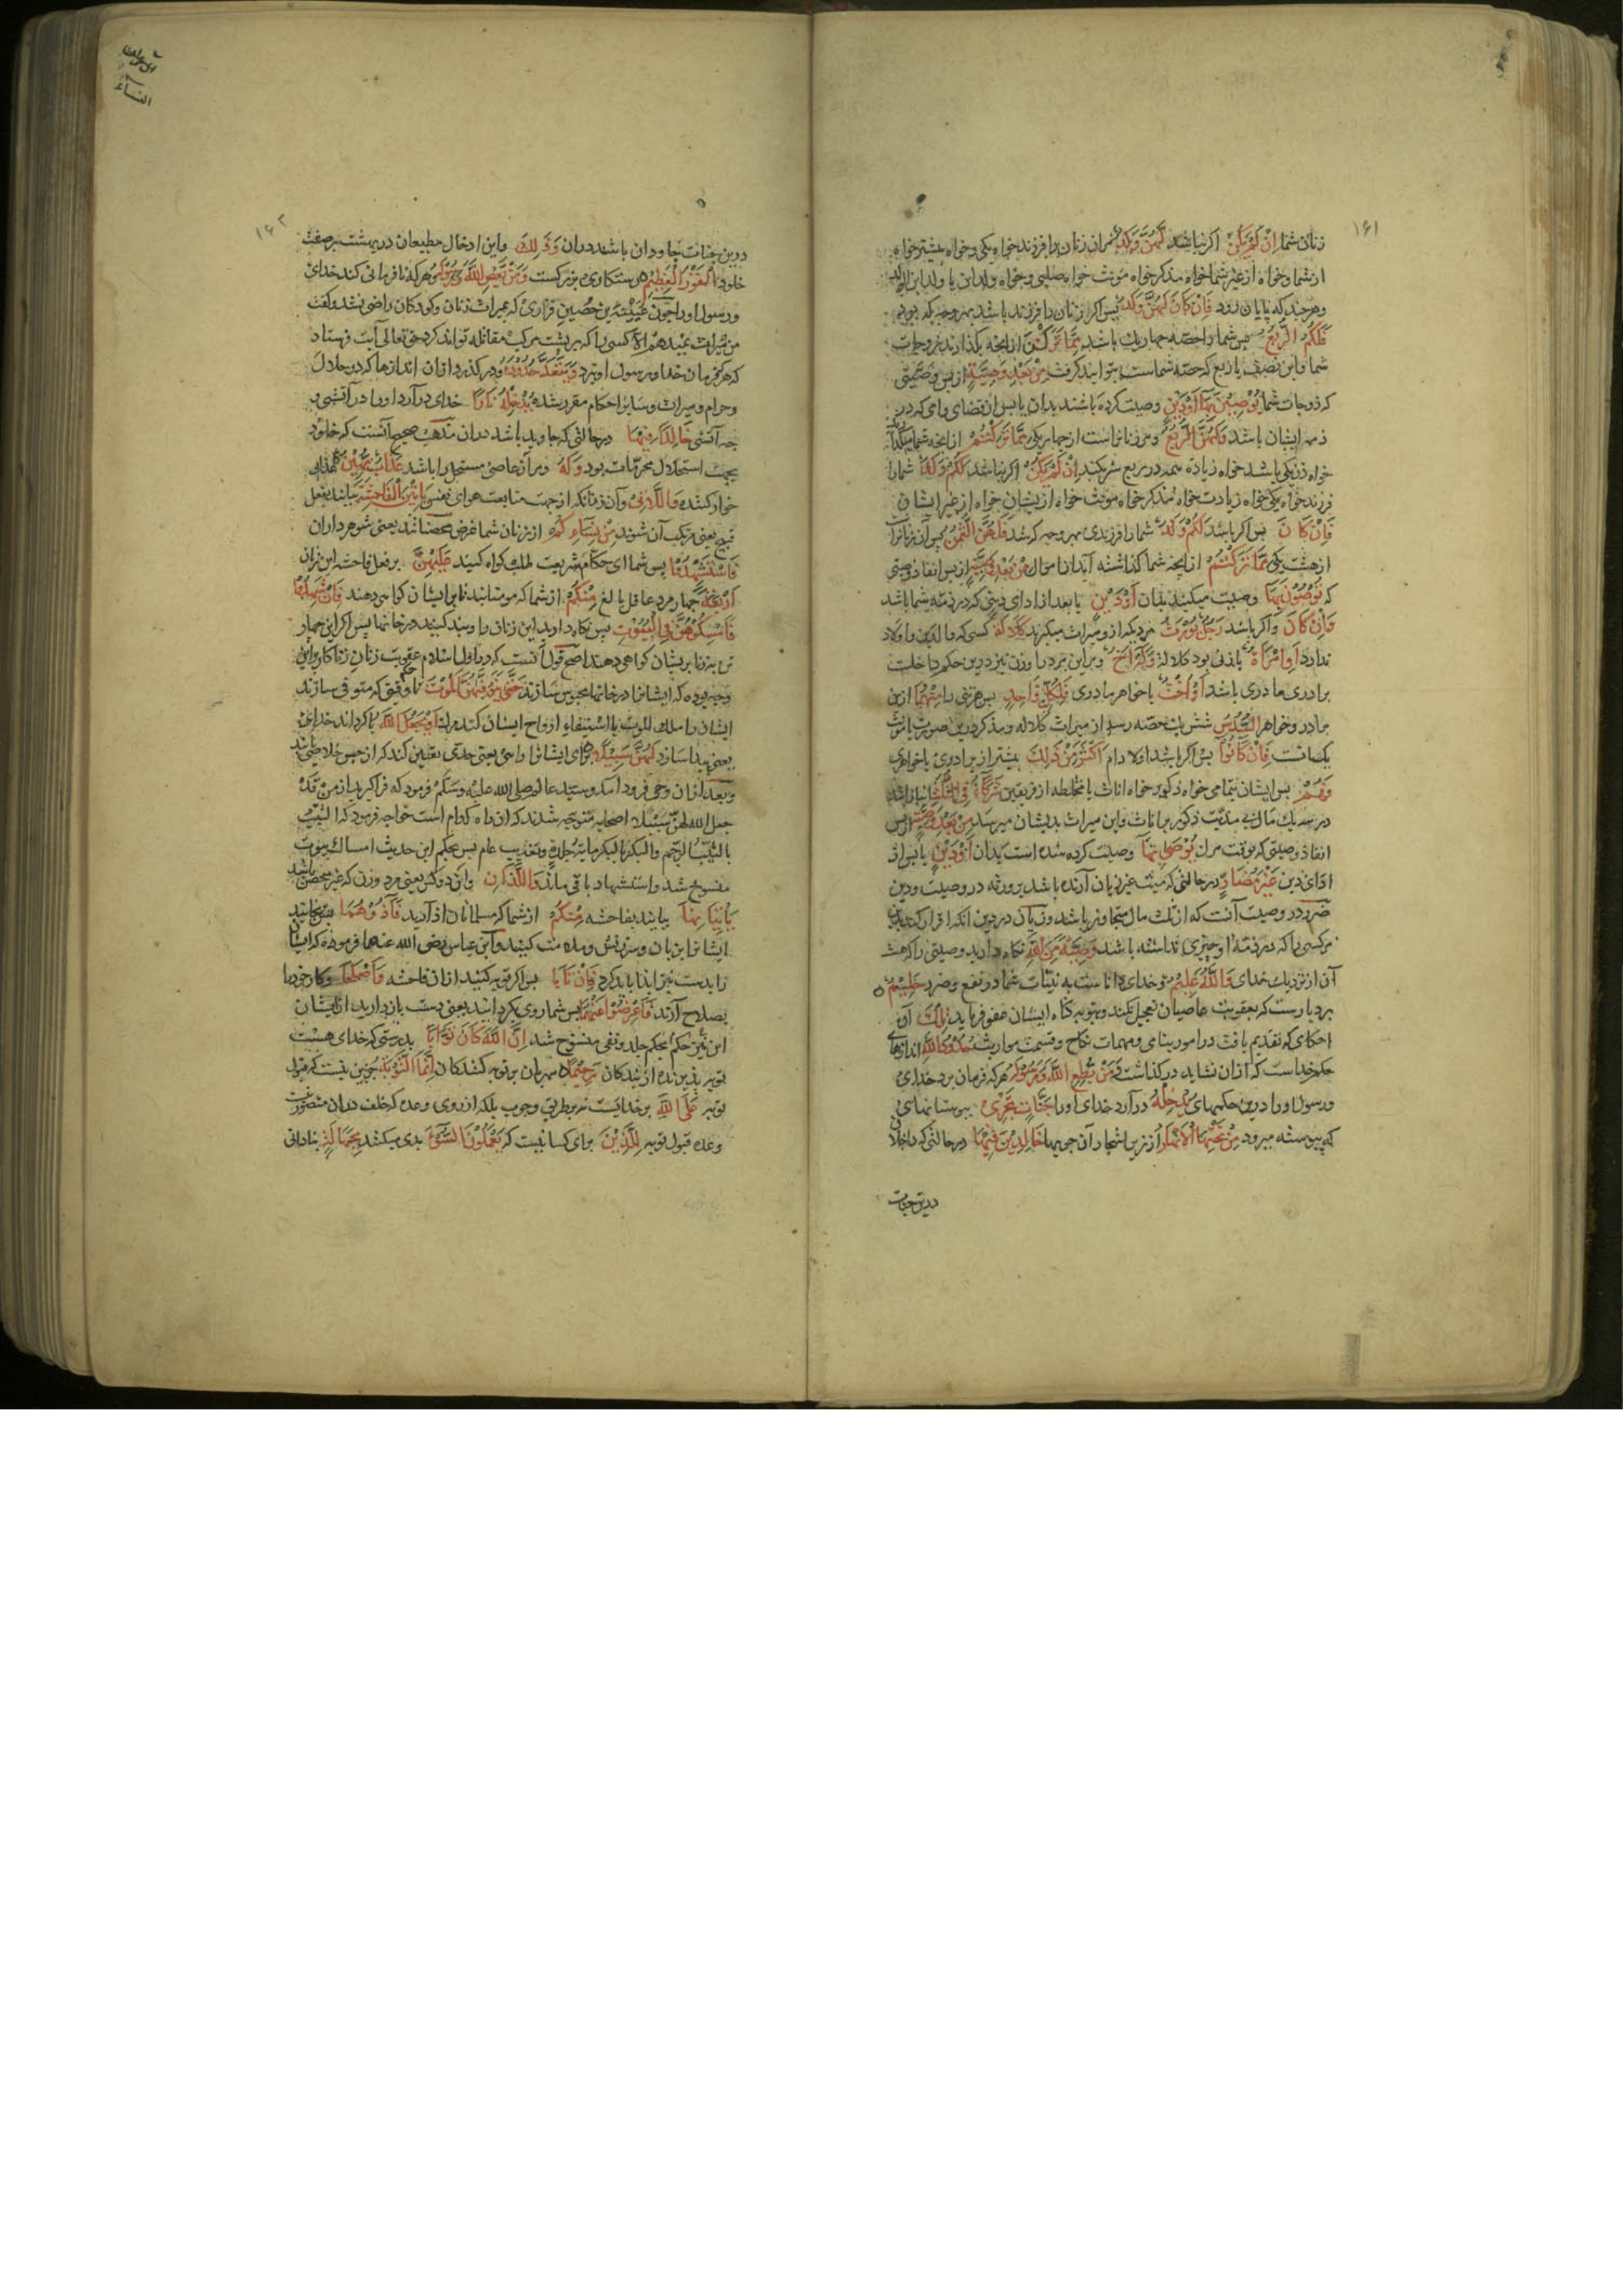 ۱۶۱
زنان شما اِنْ لَمْ يَكُنْ اکر نباشد لَهُنَّ وَلَدٌ مران زنان را فرزند خواه یکی و خواه بیشتر خواه
از شما و خواه از غیر شما خواه مذکر خواه مؤنث خواه صلبی و خواه ولد ابن یا ولد ابن الولد
و هر چند که پایان رود فَاِنْ كَانَ لَهُنَّ وَلَدٌ پس اکر زنان را فرزند باشد بهر وجه که بودیم
فَلَكُمُ الرُّبُعُ پس شما را حصه چهار یک باشد مِمَّا تَرَكْنَ از انچه بکذارند زوجات
شما و این نصف یا ربع که حصه شماست بتوانید کرفت مِنْ بَعْدِ وَصِيَّةٍ از پس وصیتی
که زوجات شما يُوْصِيْنَ بِهَا اَوْ دَيْنٍ وصیت کرده باشند بدان یا پس از قضای وامی که در
ذمه ایشان باشد وَلَهُنَّ الرُّبُعُ و مر زنانراست از چهار یکی مِمَّا تَرَكْتُمْ از انچه شما بکذارید
خواه زن یکی باشد خواه زیاده همه در ربع شریکند اِنْ لَمْ يَكُنْ اکر نباشد لَكُمْ وَلَدٌ شما را
فرزند خواه یکی خواه زیادت خواه مذکر خواه مؤنث خواه از یشان خواه از غیر ایشان
فَاِنْ كَانَ پس اکر باشد لَكُمْ وَلَدٌ شما را فرزندی بهر وجه که شد فَلَهُنَّ الثُّمُنُ پس آن زنانرا
از هشت یکی مِمَّا تَرَكْتُمْ از انچه شما کذاشته آید از اموال مِنْ بَعْدِ وَصِيَّةٍ از پس انفاذ وصیتی
که تُوْصُوْنَ بِهَا وصیت میکنید بدان اَوْ دَيْنٍ یا بعد از ادای دینی که در ذمه شما باشد
وَاِنْ كَانَ و اکر باشد رَجُلٌ يُوْرَثُ مردیکه از و میراث میکیرند كَلَالَةً کسی که والدین و اولاد
ندارد اَوِ امْرَأَةٌ یا زنی بود کلاله وَلَهُ اَخٌ و مر این مرد را و زن نیز درین حکم داخلست
برادری مادری باشد اَوْ اُخْتٌ یا خواهر مادری فَلِكُلِّ وَاحِدٍ پس هر یکی را مِنْهُمَا ازین
برادر و خواهر السُّدُسُ شش یک حصه رسد از میراث کلاله و مذکر درین صورت با مؤنث
یکسانست فَاِنْ كَانُوا پس اکر باشد اولاد ام اَكْثَرَ مِنْ ذَلِكَ بیشتر از برادری یا خواهری
فَهُمْ پس ایشان تمامی خواه ذکور خواه اناث یا مختلطه از فریقین شُرَكَاءُ فِي الثُّلُثِ انبازانند
در سه یک مال بی مزیت ذکور بر اناث و این میراث بدیشان میرسد مِنْ بَعْدِ وَصِيَّةٍ از پس
انفاذ وصیتی که بوقت مرک يُوْصَى بِهَا وصیت کرده شده است بدان اَوْ دَيْنٍ یا پس از
ادای دین غَيْرَ مُضَارٍّ در حالتی که میت غیر زیان آرنده باشد بر ورثه در وصیت و دین
ضرر در وصیت آنست که از ثلث مال متجاوز باشد و زیان در دین آنکه اقرار کند بدین
مر کسی را که در ذمه او چیزی نداشته باشد وَصِيَّةً مِنَ اللّهِ نکاه دارید وصیتی را که هست
آن از نزدیک خدای وَاللّهُ عَلِيْمٌ و خدای داناست به نیات شما در نفع و ضرر حَلِيْمٌ
بردبارست که بعقوبت عاصیان تعجیل نکند و بتوبه کناه ایشان عفو فرماید تِلْكَ آن
احکامی که تقدیم یافت در امور یتامی و مهمات نکاح و قسمت مواریث حُدُوْدُ اللّهِ اندازهای
حکم خداست که از ان نشاید در کذاشت وَمَنْ يُطِعِ اللّهَ وَرَسُوْلَهُ و هر که فرمان برد خدای
و رسول او را درین حکمهای يُدْخِلْهُ در آرد خدای او را جَنَّاتٍ تَجْرِيْ ببوستانهای
که پیوسته میرود مِنْ تَحْتِهَا الْاَنْهَارُ از زیر اشجار آن جویها خَالِدِيْنَ فِيْهَا در حالتی که داخلان
درین جنات
النساء
۱۶۲
درین جنات جاودان باشند دران وَذَلِكَ و این ادخال مطیعان در بهشت بر صفت
خلود الْفَوْزُ الْعَظِيْمُ رستکاری بزرکست وَمَنْ يَعْصِ اللّهَ وَرَسُوْلَهُ و هر که نافرمانی کند خدای
و رسول او را چون عیینه بن حصین فزاری که بمیراث زنان و کودکان راضی نشد و کفت
من میراث نمیدهم الا کسی را که بر پشت مرکب مقاتله تواند کرد حق تعالی آیت فرستاد
که هر که فرمان خدا و رسول او نبرد وَيَتَعَدَّ حُدُوْدَهُ و در کذرد از ان اندازها که در حلال
و حرام و میراث و سایر احکام مقرر شده يُدْخِلْهُ نَارًا خدای در آرد او را در آتشی و
چه آتشی خَالِدًا فِيْهَا در حالتی که جاوید باشد دران مذهب صحیح آنست که خلود
بجهت استحلال محرمات بود وَلَهُ و مر آن عاصی مستحل را باشد عَذَابٌ مُهِيْنٌ عذابی
خوار کننده وَاللَّاتِيْ و آن زنانکه از جهت متابعت هوای نفس يَأْتِيْنَ الْفَاحِشَةَ بیایند بفعل
قبیح یعنی مرتکب آن شوند مِنْ نِسَائِكُمْ از زنان شما غرض محصناتند یعنی شوهرداران
فَاسْتَشْهِدُوْا پس شما ای حکام شریعت طلب کواه کنید عَلَيْهِنَّ بر فعل فاحشه این زنان
اَرْبَعَةً چهار مرد عاقل بالغ مِنْكُمْ از شما که مومنانید تا بر ایشان کواهی دهند فَاِنْ شَهِدُوْا
فَاَمْسِكُوْهُنَّ فِي الْبُيُوْتِ پس نکاه دارید این زنان را و بند کنید در خانها پس اکر این چهار
تن بر زنا بریشان کواهی دهند اصح قول آنست که در اول اسلام عقوبت زنان زناکار برین
وجه بوده که ایشانرا در خانها محبوس سازند حَتَّى يَتَوَفَّاهُنَّ الْمَوْتُ تا وقتی که متوفی سازد
ایشان را ملک الموت یا استیفاء ارواح ایشان کند مرک اَوْ يَجْعَلَ اللّهُ یا کرداند خدای
یعنی پیدا سازد لَهُنَّ سَبِيْلًا برای ایشان راهی یعنی حدی تعیین کند که از حبس خلاصی یابند
و بعد از ان وحی فرود آمد و سید عالم صلی الله علیه وسلم فرمود که فرا کیرید از من قد
جعل الله لهن سبیلا اصحابه متوجه شدند که ان راه کدام است خواجه فرمود که الثیب
بالثیب الرجم والبکر بالبکر مایة جلدة وتغریب عام پس بحکم این حدیث امساک بیوت
منسوخ شد و استشهاد باقی ماند وَاللَّذَانِ و ان دو کس یعنی مرد و زن که غیر محصن باشند
يَأْتِيَانِهَا بیایند بفاحشه مِنْكُمْ از شما که مسلمانان اند آرید فَآذُوْهُمَا پس برنجانید
ایشانرا بزبان و سرزنش و ملامت کنید و آبن عباس رضی الله عنهما فرموده که ایشان
را بدست نیز ایذا باید کرد فَاِنْ تَابَا پس اکر توبه کنند از ان فاحشه وَاَصْلَحَا و کار خود را
بصلاح آرند فَاَعْرِضُوْا عَنْهُمَا پس شما روی بکردانید یعنی دست باز دارید از ایشان
این نیز حکم بحکم جلد و نفی منسوخ شد اِنَّ اللّهَ كَانَ تَوَّابًا بدرستی که خدای هست
توبه پذیرنده از بندکان رَحِيْمًا مهربان بر توبه کنندکان اِنَّمَا التَّوْبَةُ جزین نیست که قبول
توبه عَلَى اللّهِ بر خدایست نه بر طریق وجوب بلکه از روی وعده که خلف دران متصور نیست
وعده قبول توبه لِلَّذِيْنَ برای کسانیست که يَعْمَلُوْنَ السُّوْءَ بدی میکنند بِجَهَالَةٍ بنادانی